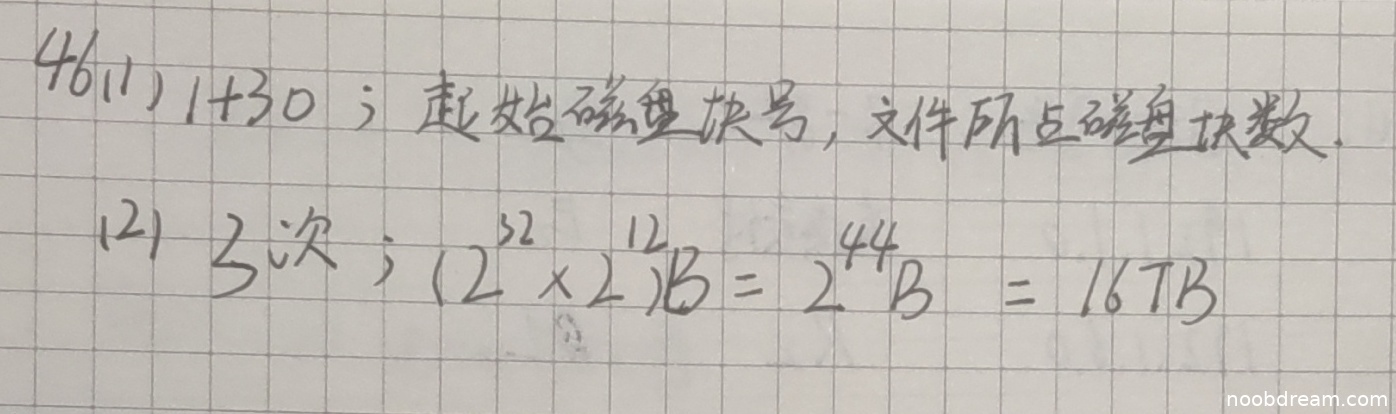 46(1) 1+30；起始磁盘块号，文件所占磁盘块数.
(2) 3次；(2^32×2^12)B=2^44B = 16TB
noobdream.com